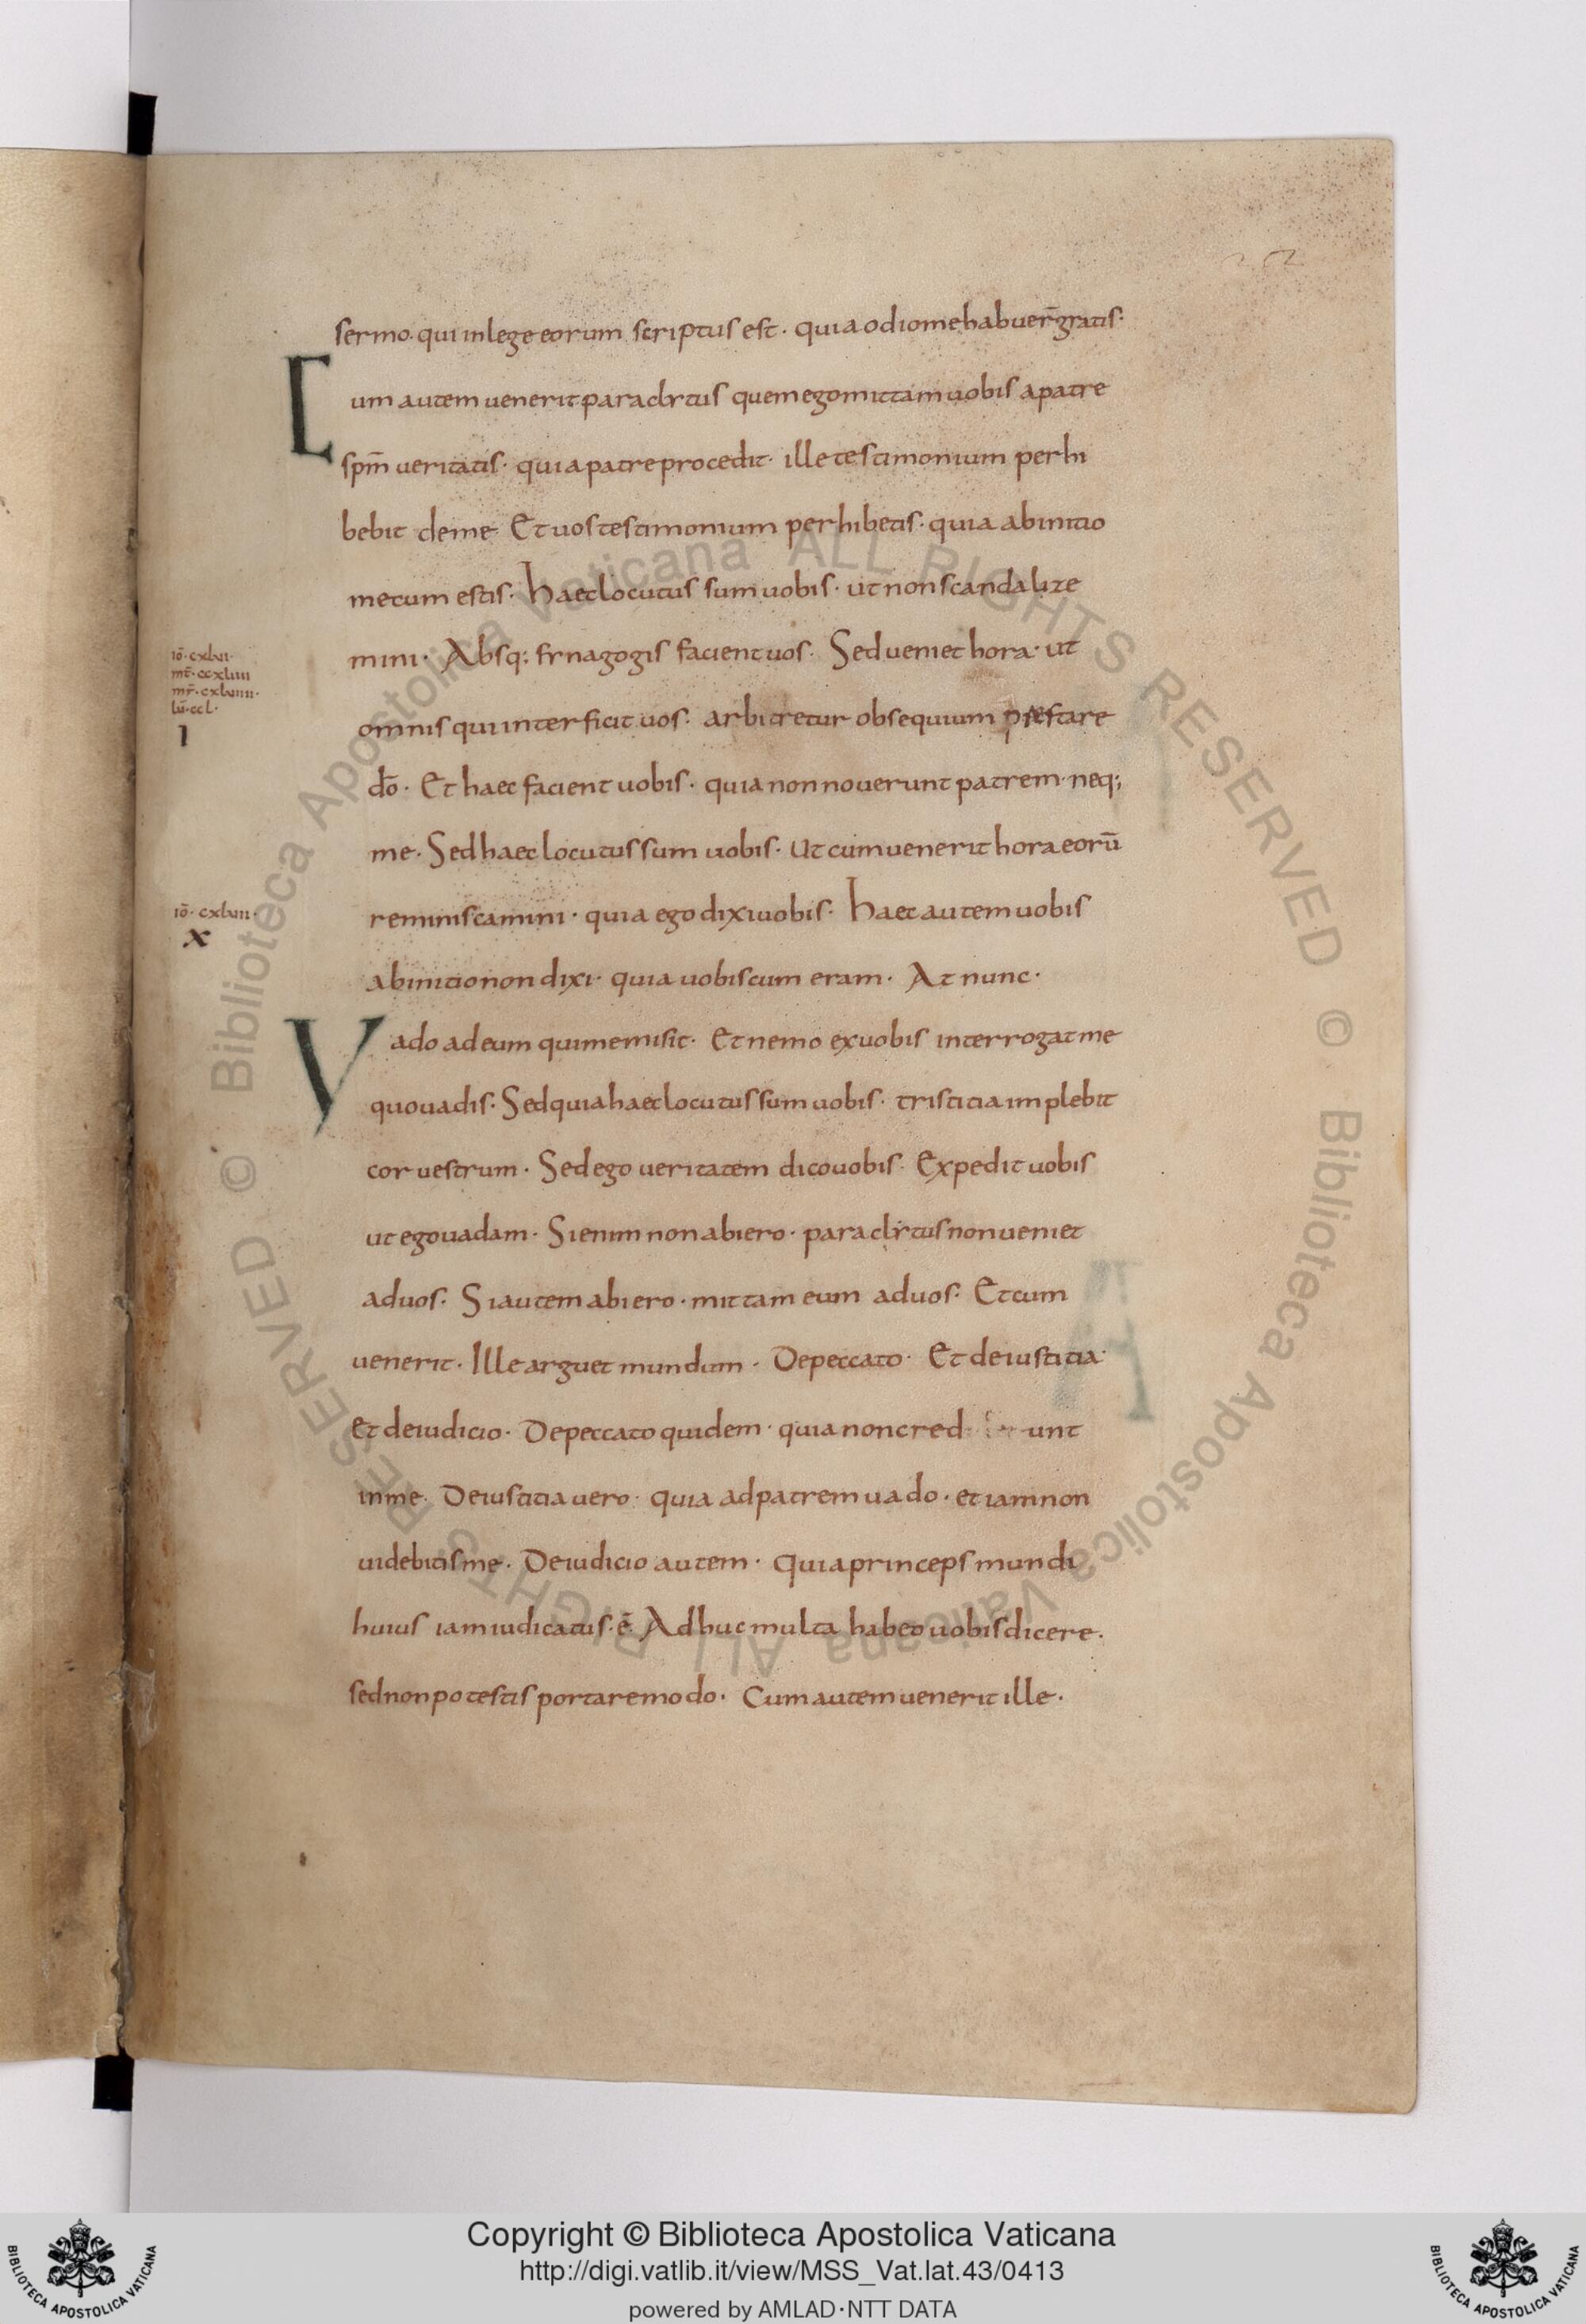 sermo · qui in lege eorum scriptus est · quia odio me habuer̄ gratis ·
Cum autem uenerit paraclytus quem ego mittam uobis a patre
sp̄m ueritatis · qui a patre procedit · ille testimonium perhi
bebit de me Et uos testimonium perhibetis · quia ab initio
mecum estis · haec locutus sum uobis · ut non scandalize
mini · Absq; synagogis facient uos · Sed ueniet hora · ut
iō · cxlvi ·
mt̄ · ccxliiii
mr̄ · cxlviiii ·
lū · ccl ·
I
omnis qui interficit uos · arbitretur obsequium praestare
d̄o · Et haec facient uobis · quia non nouerunt patrem · neq;
me · Sed haec locutus sum uobis · Ut cum uenerit hora eorū
iō · cxlvii ·
X
reminiscamini · quia ego dixi uobis · haec autem uobis
ab initio non dixi · quia uobiscum eram · At nunc ·
Vado ad eum qui me misit · Et nemo ex uobis interrogat me
quo uadis · Sed quia haec locutus sum uobis · tristitia implebit
cor uestrum · Sed ego ueritatem dico uobis · Expedit uobis
ut ego uadam · Si enim non abiero · paraclytus non ueniet
ad uos · Si autem abiero · mittam eum ad uos · Et cum
uenerit · Ille arguet mundum · De peccato · Et de iustitia ·
Et de iudicio · De peccato quidem · quia non cred unt
in me · De iustitia uero · quia ad patrem uado · et iam non
uidebitis me · De iudicio autem · Quia princeps mundi
huius iam iudicatus · ē · Adhuc multa habeo uobis dicere ·
sed non potestis portare modo · Cum autem uenerit ille ·
Copyright © Biblioteca Apostolica Vaticana
http://digi.vatlib.it/view/MSS_Vat.lat.43/0413
powered by AMLAD·NTT DATA
BIBLIOTECA APOSTOLICA VATICANA
BIBLIOTECA APOSTOLICA VATICANA
© Biblioteca Apostolica Vaticana ALL RIGHTS RESERVED © Biblioteca Apostolica Vaticana ALL RIGHTS RESERVED